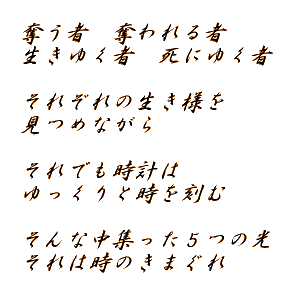 奪う者　奪われる者
生きゆく者　死にゆく者
それぞれの生き様を
見つめながら
それでも時計は
ゆっくりと時を刻む
そんな中集った５つの光
それは時のきまぐれ